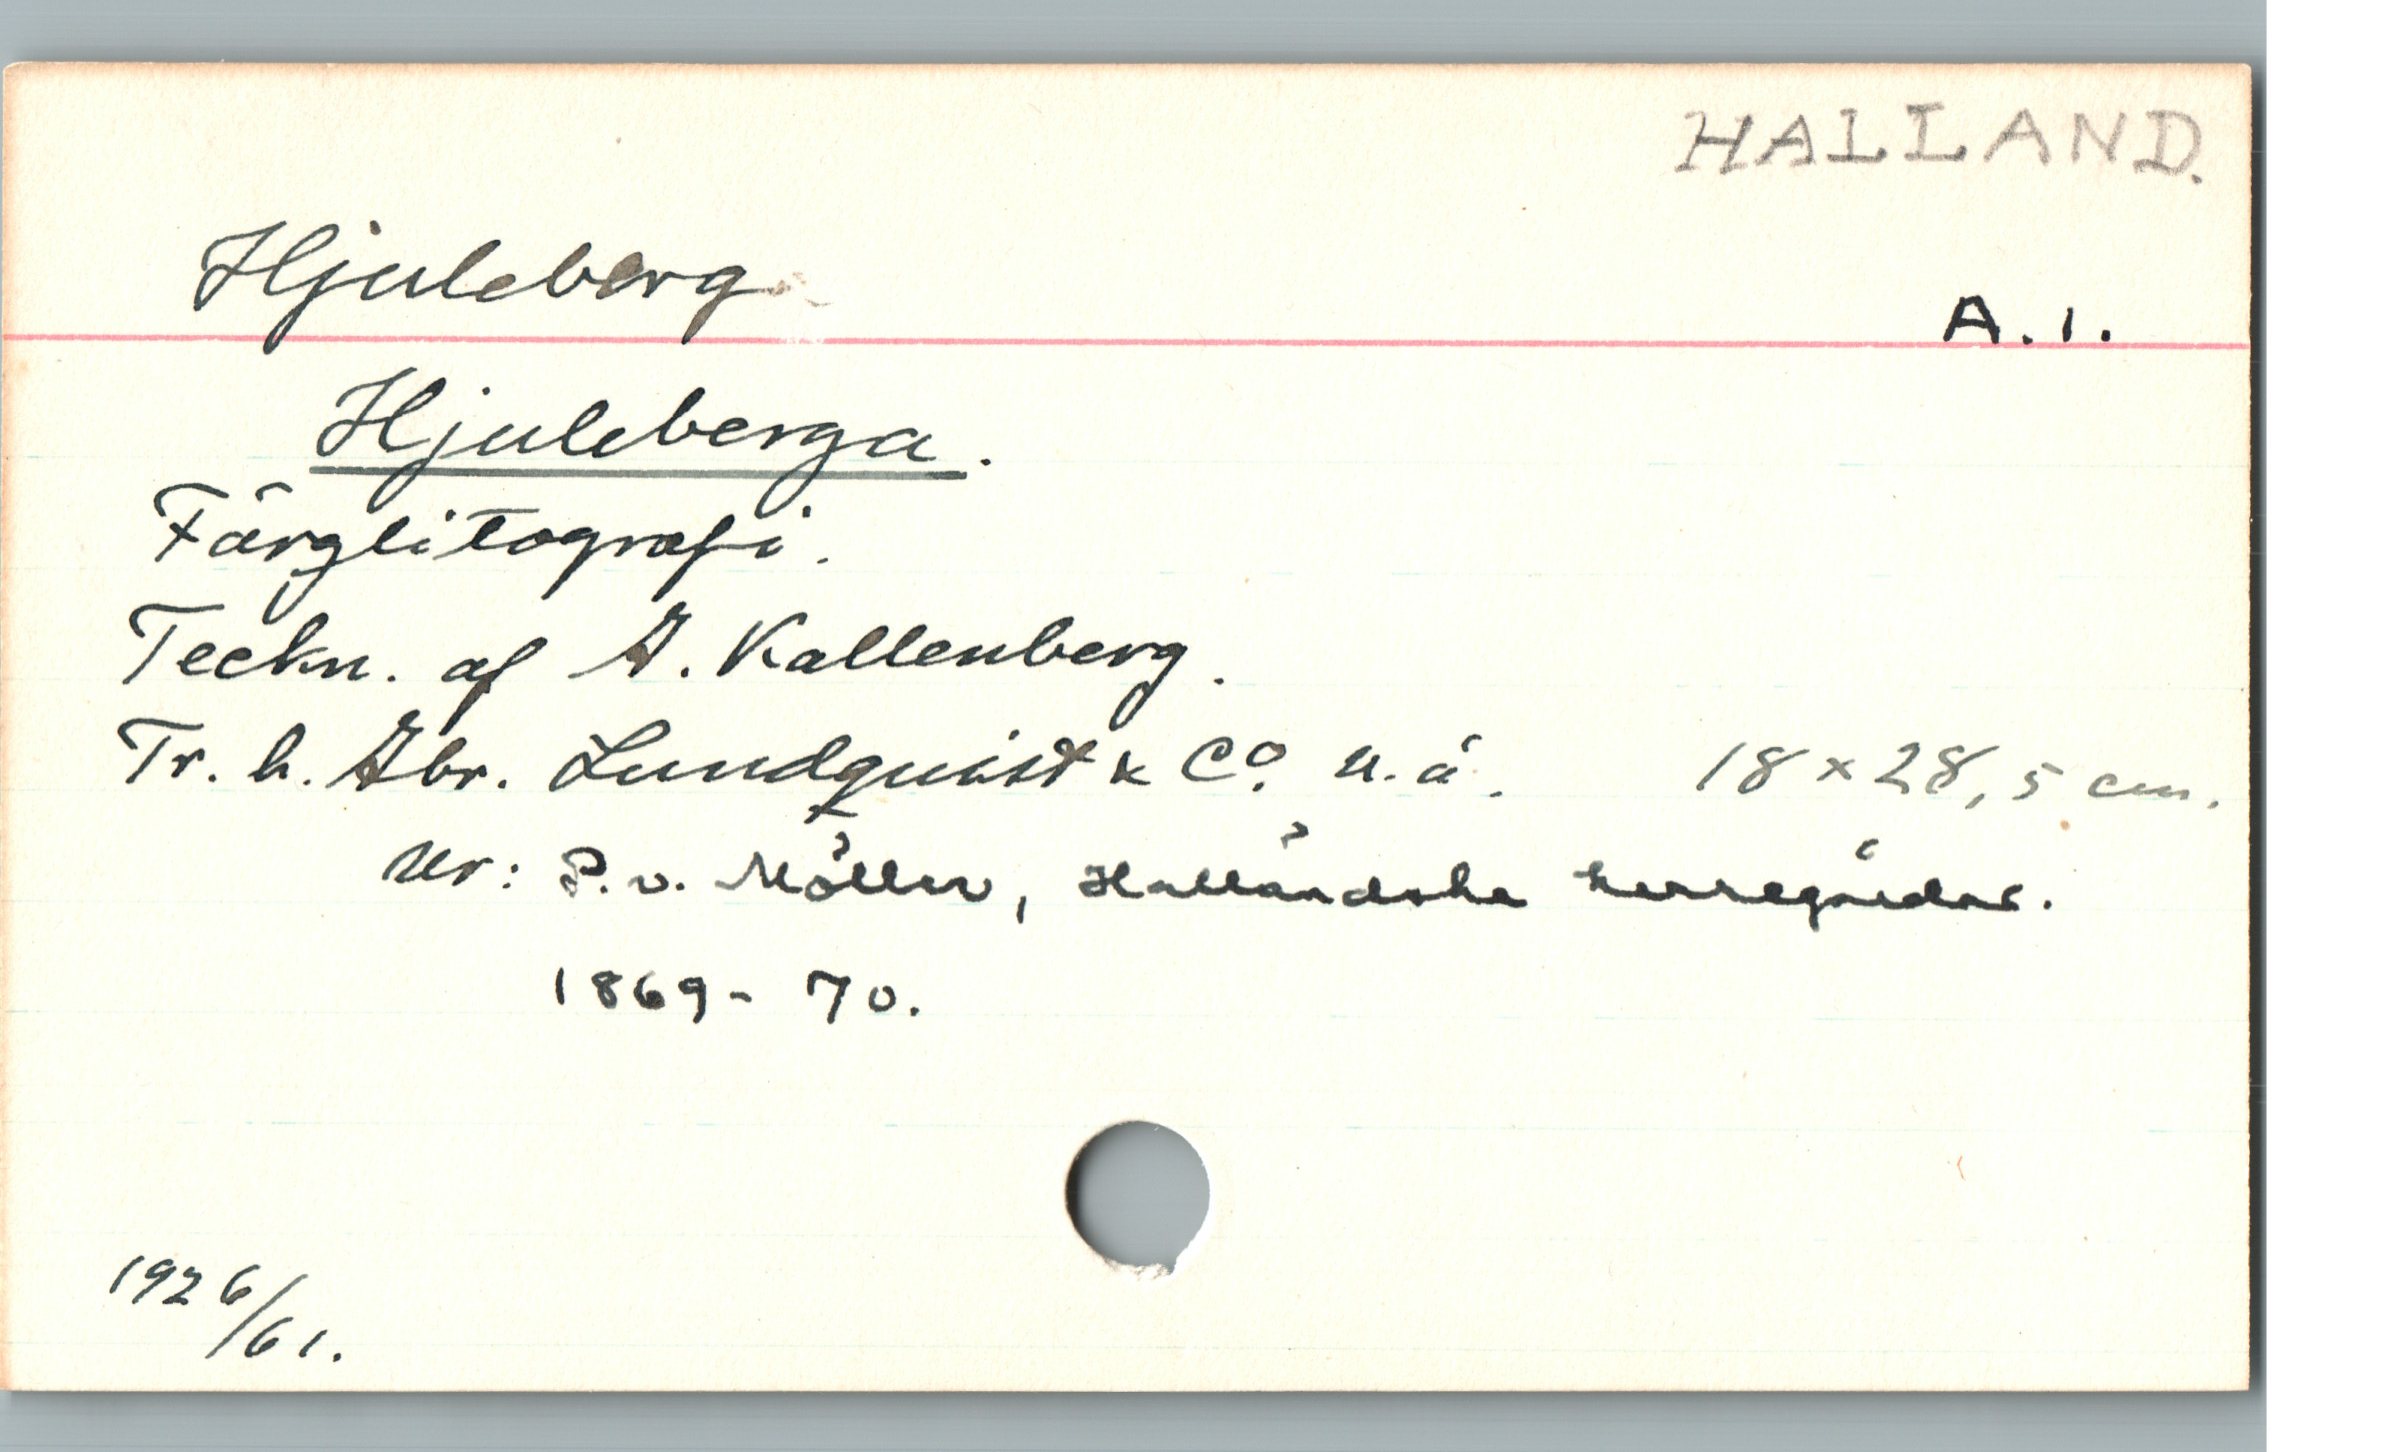 HALLAND.
Hjuleberg
A. 1.
Hjuleberga.
Färglitografi.
Teckn. af A. Kallenberg.
Tr. h. Abr. Lundquist & Co. u. å. 18 x 28,5 cm.
Ur: P. v. Möller, Halländska herregårdar.
1869-70.
1926/61.